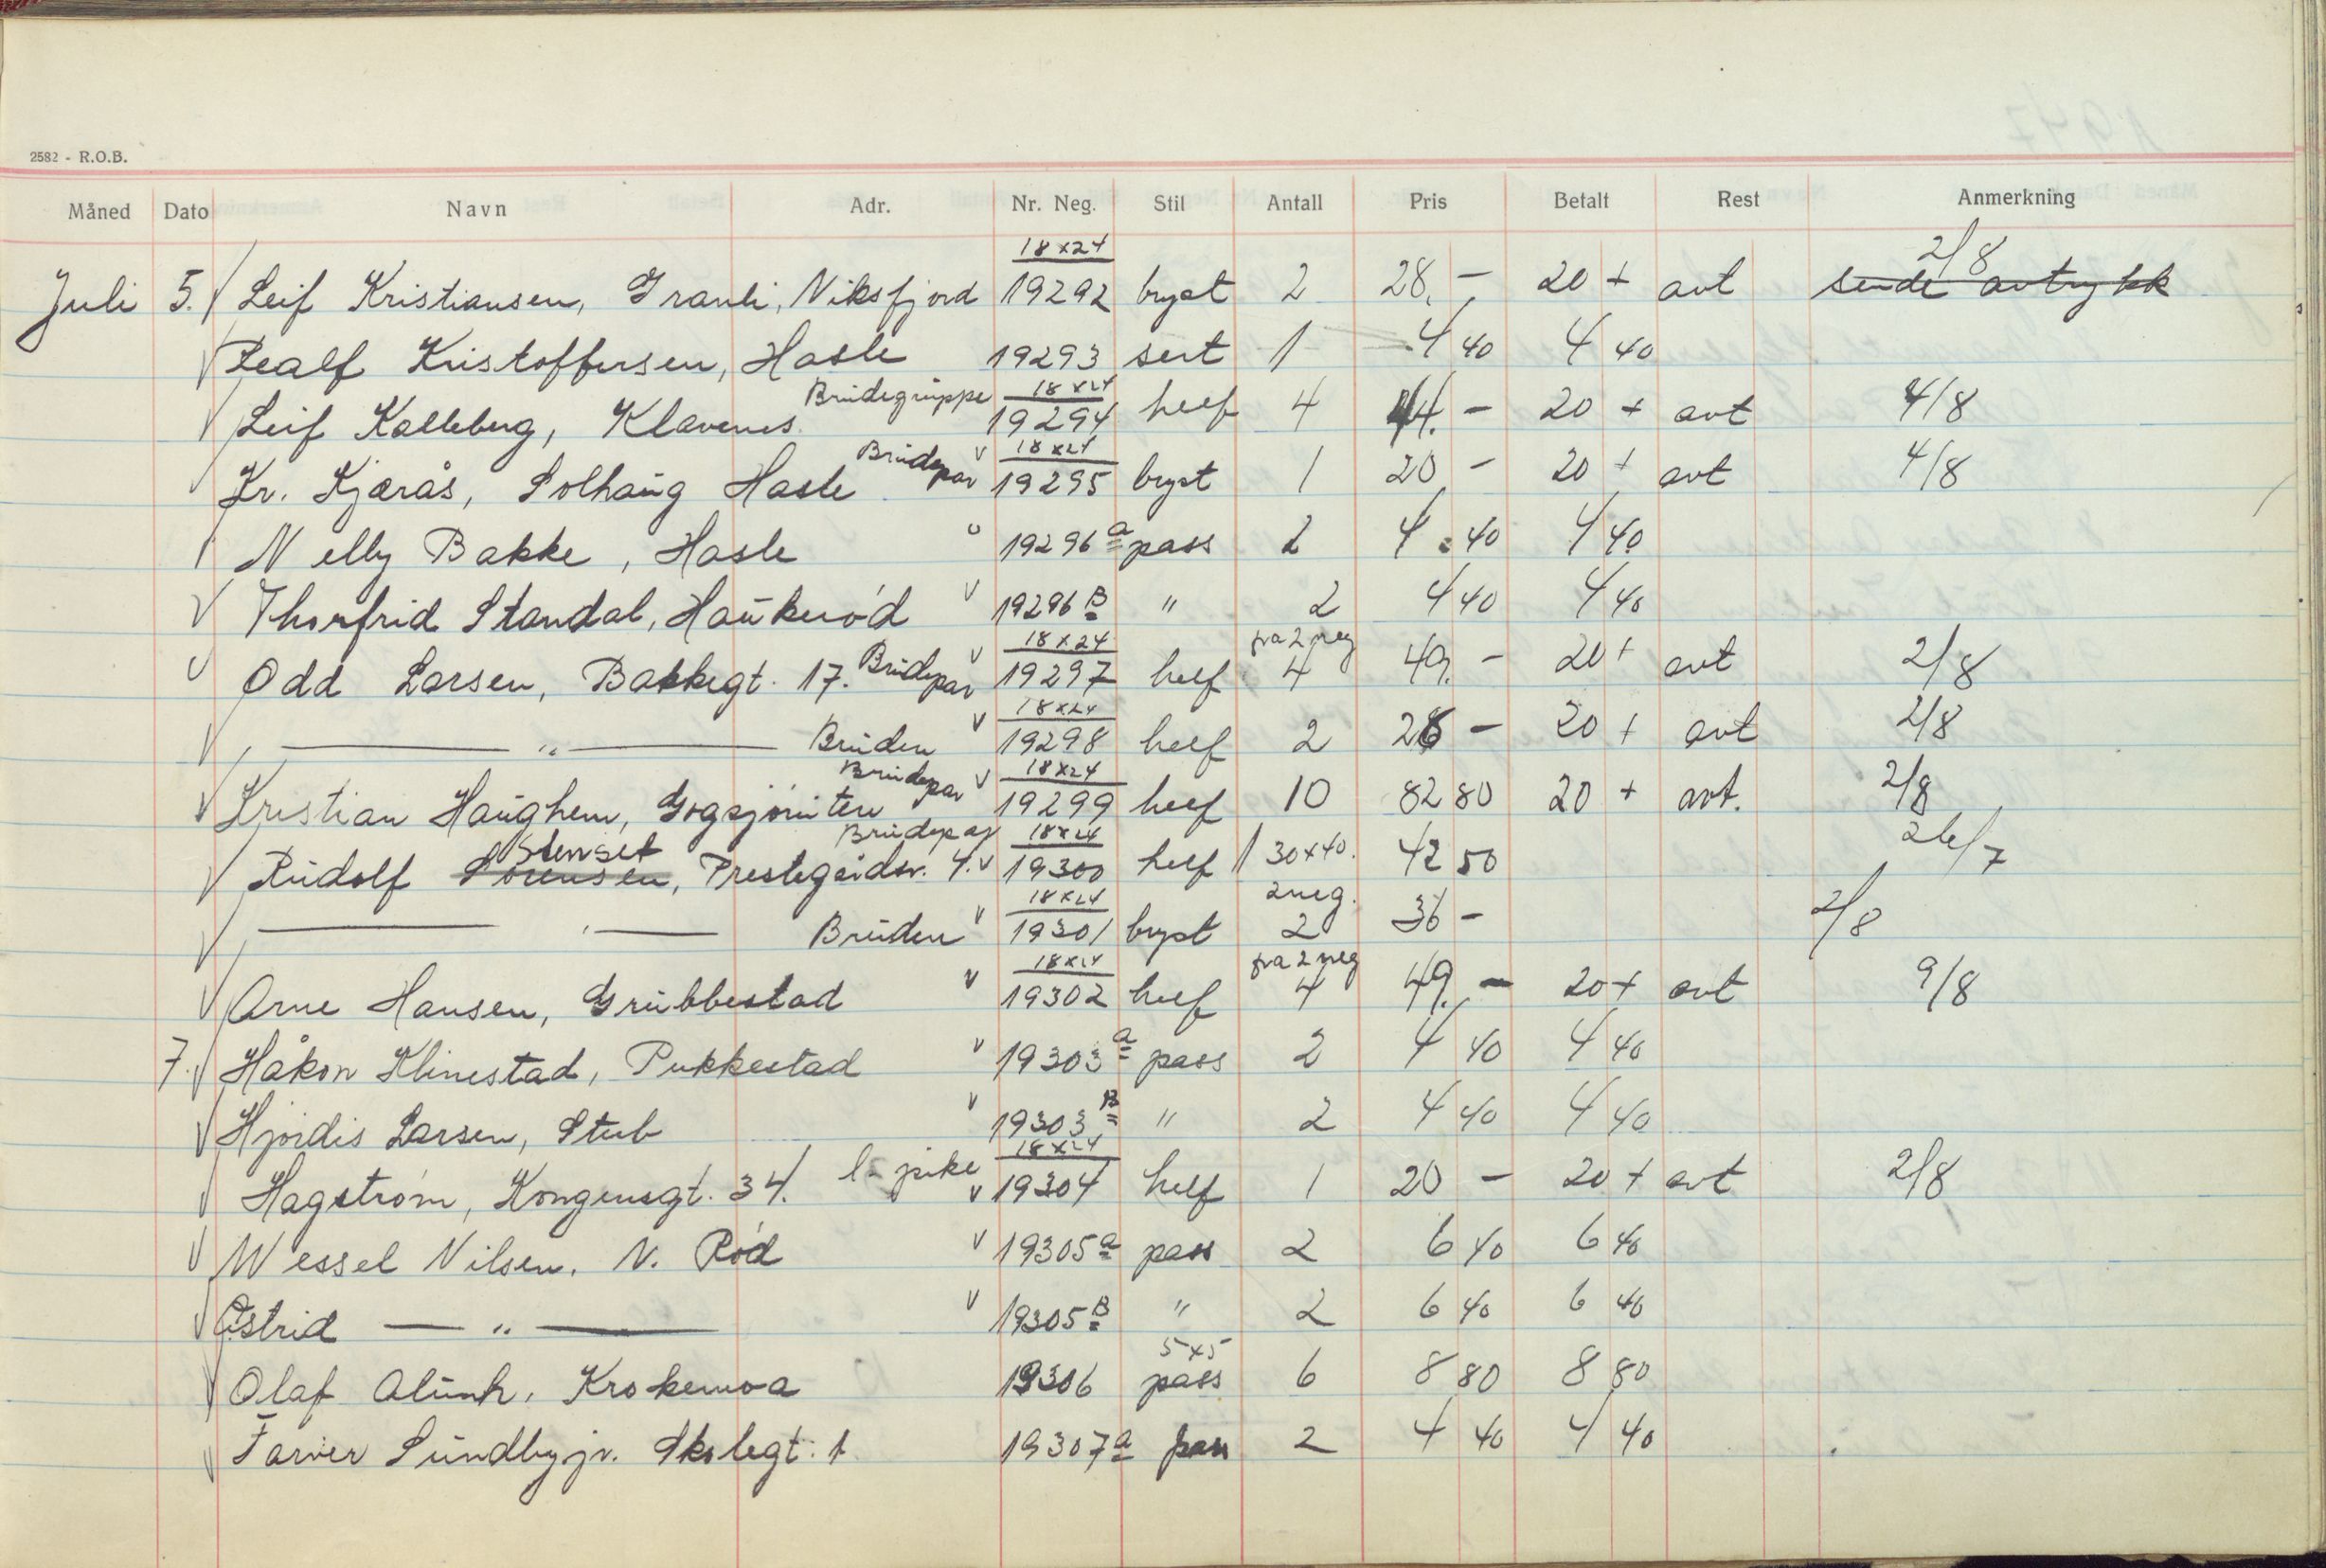 2582 - R.O.B.
Måned Dato Navn Adr. Nr. Neg. Stil Antall Pris Betalt Rest Anmerkning
18x24 2/8
Juli 5. Leif Kristiansen, Granli, Viksfjord 19292 bryst 2 28,- 20 + avt sende avtrykk
Realf Kristoffersen, Hasle 19293 sert 1 4 40 4 40
Brudegruppe 18x24
Leif Kalleberg, Klavenes 19294 helf 4 44.- 20 + avt 4/8
Brudepar v 18x24
Kr. Kjærås, Solhaug Hasle 19295 bryst 1 20 - 20 + avt 4/8
Nelly Bakke, Hasle v 19296 a pass 2 4.40 4 40
Thorfrid Standal, Haukerød v 19296 B " 2 4 40 4 40
v 18x24 fra 2 neg
Odd Larsen, Bakkegt. 17. Brudepar 19297 helf 4 49.- 20 + avt 2/8
18x24
— " — Bruden v 19298 helf 2 26 - 20 + avt 2/8
Brudepar v 18x24
Kristian Haughem, Gogsjøruten 19299 helf 10 82 80 20 + avt. 2/8
Stenset Brudepar 18x24
Rudolf Sørensen, Prestegårdsv. 4. v 19300 helf 1 30x40. 42 50 26/7
18x24 2 neg.
— " — Bruden v 19301 bryst 2 36 - 2/8
18x24 fra 2 neg
Arne Hansen, Grubbestad v 19302 helf 4 49.- 20 + avt 9/8
7. Håkon Klinestad, Pukkestad v 19303 a pass 2 4 40 4 40
Hjørdis Larsen, Stub v 19303 B " 2 4 40 4 40
18x24
Hagstrøm, Kongensgt. 34. l. pike v 19304 helf 1 20 - 20 + avt 2/8
Wessel Nilsen, N. Rød v 19305 a pass 2 6 40 6 40
Astrid — " — v 19305 B " 2 6 40 6 40
5x5
Olaf Alünk, Krokemoa 19306 pass 6 8 80 8 80
Farver Sundby jr. Skolegt. 1 19307 a pass 2 4 40 4 40